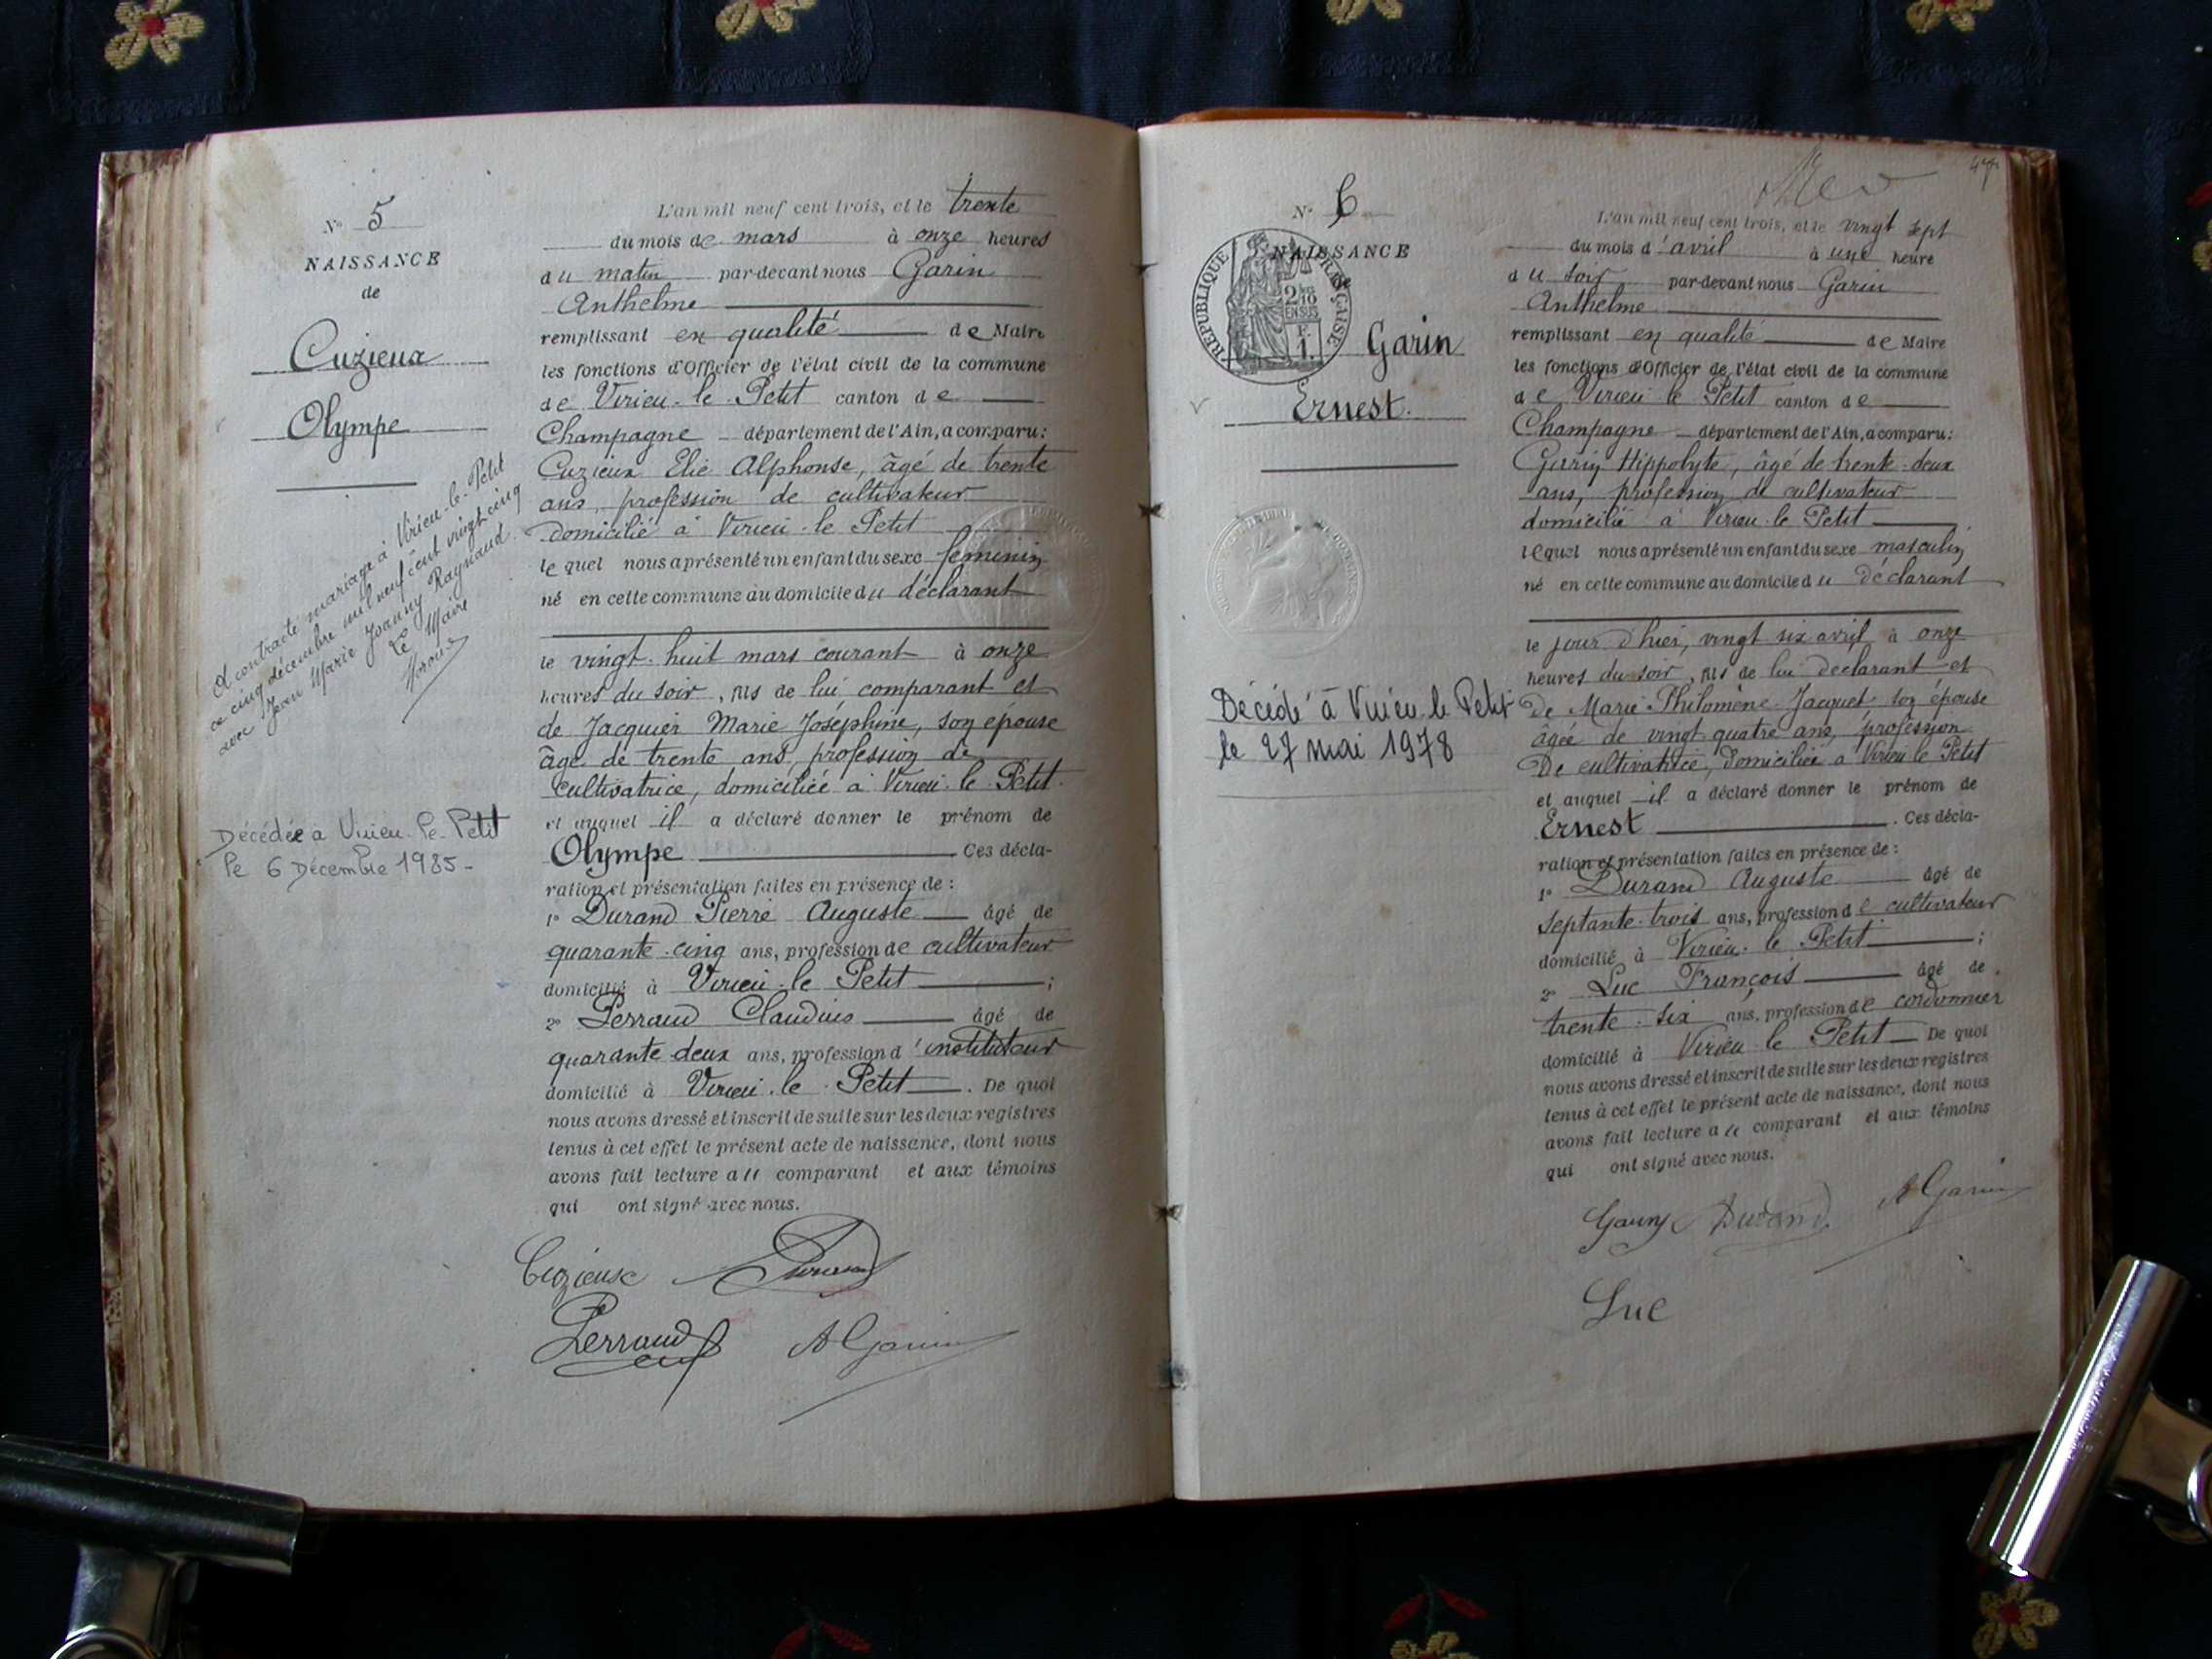 N° 5
NAISSANCE
de
Cuzieux
Olympe
A contracté mariage à Virieu-le-Petit
ce cinq décembre mil neuf cent vingt-cinq
avec Jean Marie Joanny Raynaud.
Le Maire
Décédée à Virieu-le-Petit
le 6 Décembre 1985-
L'an mil neuf cent trois, et le trente
du mois de mars à onze heures
du matin par-devant nous Garin
Anthelme
remplissant en qualité de Maire
les fonctions d'Officier de l'état civil de la commune
de Virieu-le-Petit canton de
Champagne département de l'Ain, a comparu:
Cuzieux Elie Alphonse, âgé de trente
ans, profession de cultivateur
domicilié à Virieu-le Petit
lequel nous a présenté un enfant du sexe féminin
né en cette commune au domicile du déclarant
le vingt-huit mars courant à onze
heures du soir, fils de lui comparant et
de Jacquier Marie Joséphine, son épouse
âgé de trente ans, profession de
cultivatrice, domiciliée à Virieu-le-Petit.
et auquel il a déclaré donner le prénom de
Olympe Ces décla-
ration et présentation faites en présence de:
1° Durand Pierre Auguste âgé de
quarante-cinq ans, profession de cultivateur
domicilié à Virieu-le Petit;
2° Perraud Claudius âgé de
quarante-deux ans, profession d'instituteur
domicilié à Virieu-le-Petit. De quoi
nous avons dressé et inscrit de suite sur les deux registres
tenus à cet effet le présent acte de naissance, dont nous
avons fait lecture au comparant et aux témoins
qui ont signé avec nous.
Cuzieux Durand
Perraud A Garin
47
N° 6
NAISSANCE
de
RÉPUBLIQUE FRANÇAISE
2/10 EN SUS
F.
1.
Garin
Ernest.
Décédé à Virieu le Petit
le 27 mai 1978
L'an mil neuf cent trois, et le vingt sept
du mois d'avril à une heure
du soir par-devant nous Garin
Anthelme
remplissant en qualité de Maire
les fonctions d'Officier de l'état civil de la commune
de Virieu le Petit canton de
Champagne département de l'Ain, a comparu:
Garin Hippolyte, âgé de trente-deux
ans, profession de cultivateur
domicilié à Virieu-le Petit,
lequel nous a présenté un enfant du sexe masculin
né en cette commune au domicile du déclarant
le jour d'hier, vingt six avril à onze
heures du soir, fils de lui déclarant et
de Marie-Philomène Jacquet son épouse
âgée de vingt-quatre ans, profession
de cultivatrice, domiciliée à Virieu le Petit
et auquel il a déclaré donner le prénom de
Ernest. Ces décla-
ration et présentation faites en présence de:
1° Durand Auguste âgé de
septante-trois ans, profession de cultivateur
domicilié à Virieu-le Petit;
2° Luc François âgé de
trente-six ans, profession de cordonnier
domicilié à Virieu-le Petit De quoi
nous avons dressé et inscrit de suite sur les deux registres
tenus à cet effet le présent acte de naissance, dont nous
avons fait lecture au comparant et aux témoins
qui ont signé avec nous.
Garin Durand A Garin
Luc